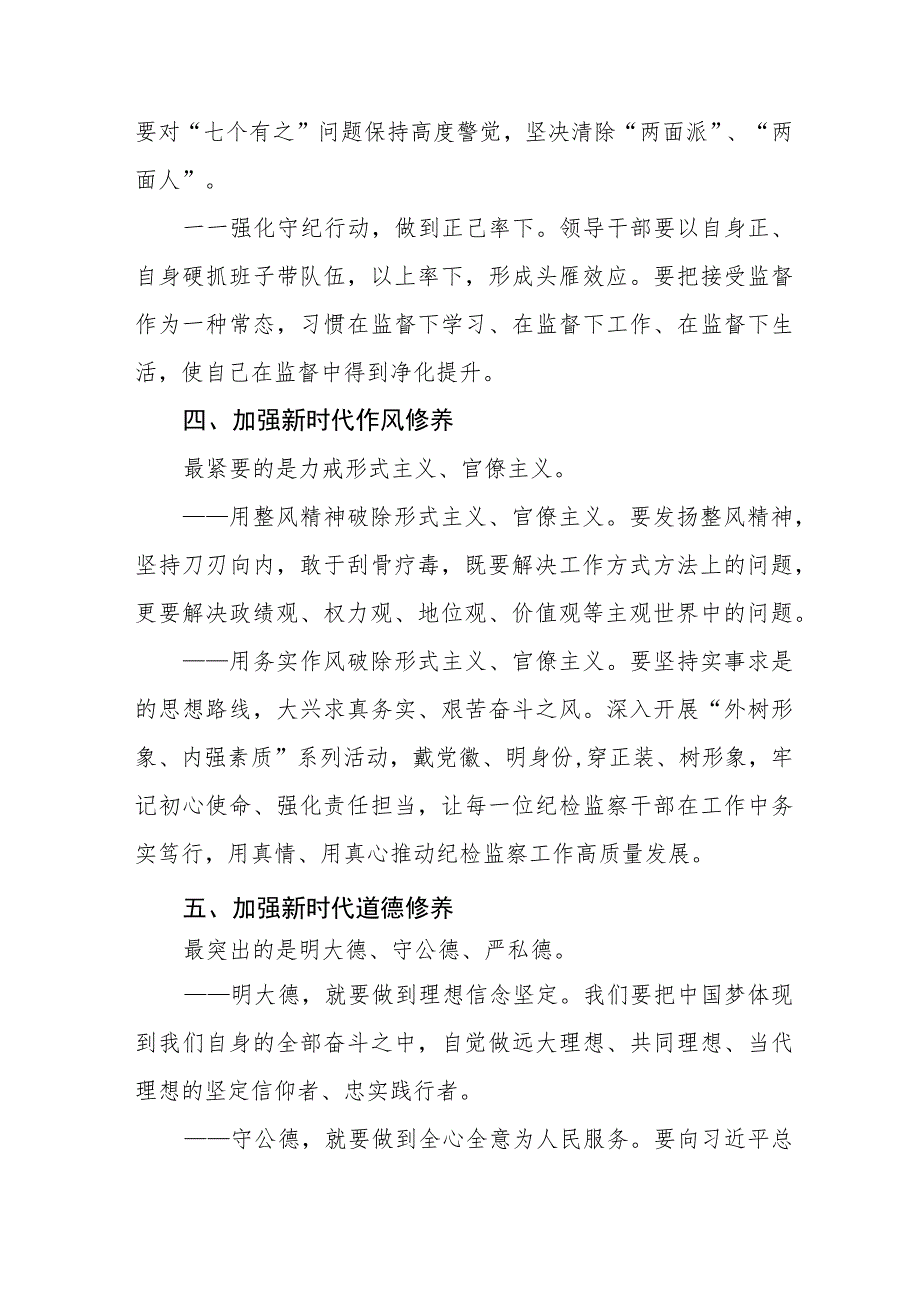 要对“七个有之”问题保持高度警觉，坚决清除“两面派”、“两
面人”。
一一强化守纪行动，做到正己率下。领导干部要以自身正、
自身硬抓班子带队伍，以上率下，形成头雁效应。要把接受监督
作为一种常态，习惯在监督下学习、在监督下工作、在监督下生
活，使自己在监督中得到净化提升。
四、加强新时代作风修养
最紧要的是力戒形式主义、官僚主义。
——用整风精神破除形式主义、官僚主义。要发扬整风精神，
坚持刀刃向内，敢于刮骨疗毒，既要解决工作方式方法上的问题，
更要解决政绩观、权力观、地位观、价值观等主观世界中的问题。
——用务实作风破除形式主义、官僚主义。要坚持实事求是
的思想路线，大兴求真务实、艰苦奋斗之风。深入开展“外树形
象、内强素质”系列活动，戴党徽、明身份,穿正装、树形象，牢
记初心使命、强化责任担当，让每一位纪检监察干部在工作中务
实笃行，用真情、用真心推动纪检监察工作高质量发展。
五、加强新时代道德修养
最突出的是明大德、守公德、严私德。
——明大德，就要做到理想信念坚定。我们要把中国梦体现
到我们自身的全部奋斗之中，自觉做远大理想、共同理想、当代
理想的坚定信仰者、忠实践行者。
——守公德，就要做到全心全意为人民服务。要向习近平总